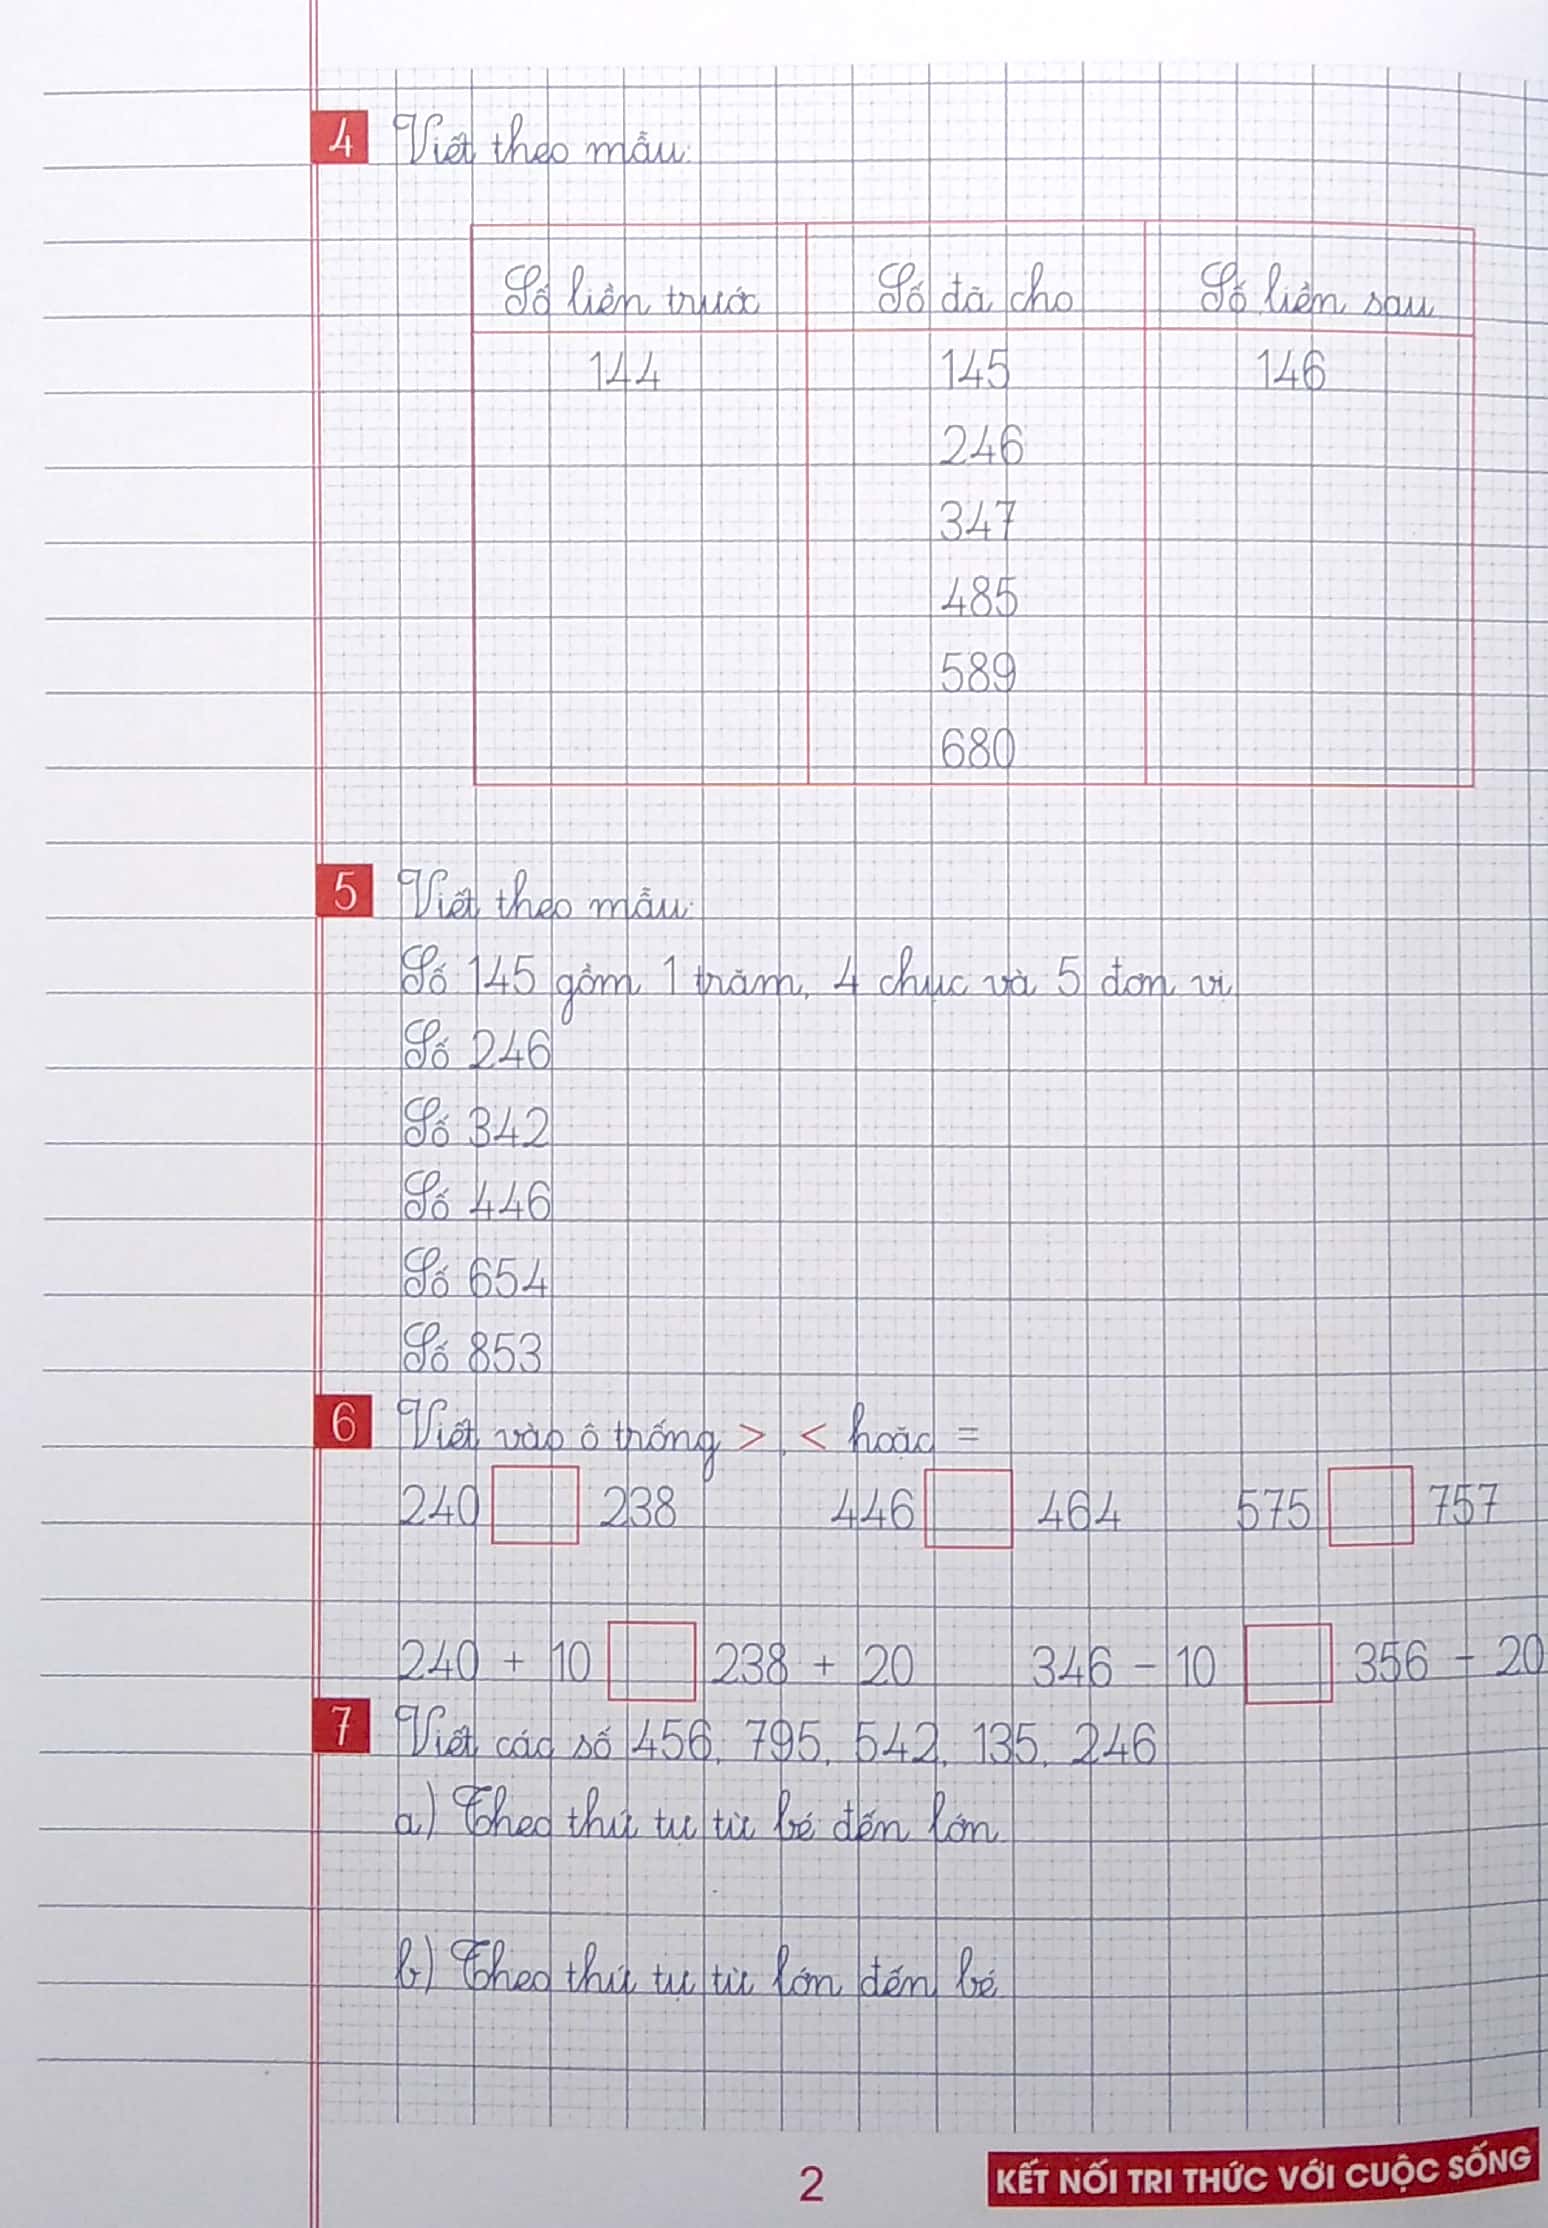 4 Viết theo mẫu:
Số liền trước Số đã cho Số liền sau
144 145 146
246
347
485
589
680
5 Viết theo mẫu:
Số 145 gồm 1 trăm, 4 chục và 5 đơn vị
Số 246
Số 342
Số 446
Số 654
Số 853
6 Viết vào ô trống >, < hoặc =
240 238 446 464 575 757
240 + 10 238 + 20 346 - 10 356 - 20
7 Viết các số 456, 795, 542, 135, 246
a) Theo thứ tự từ bé đến lớn
b) Theo thứ tự từ lớn đến bé
2 KẾT NỐI TRI THỨC VỚI CUỘC SỐNG